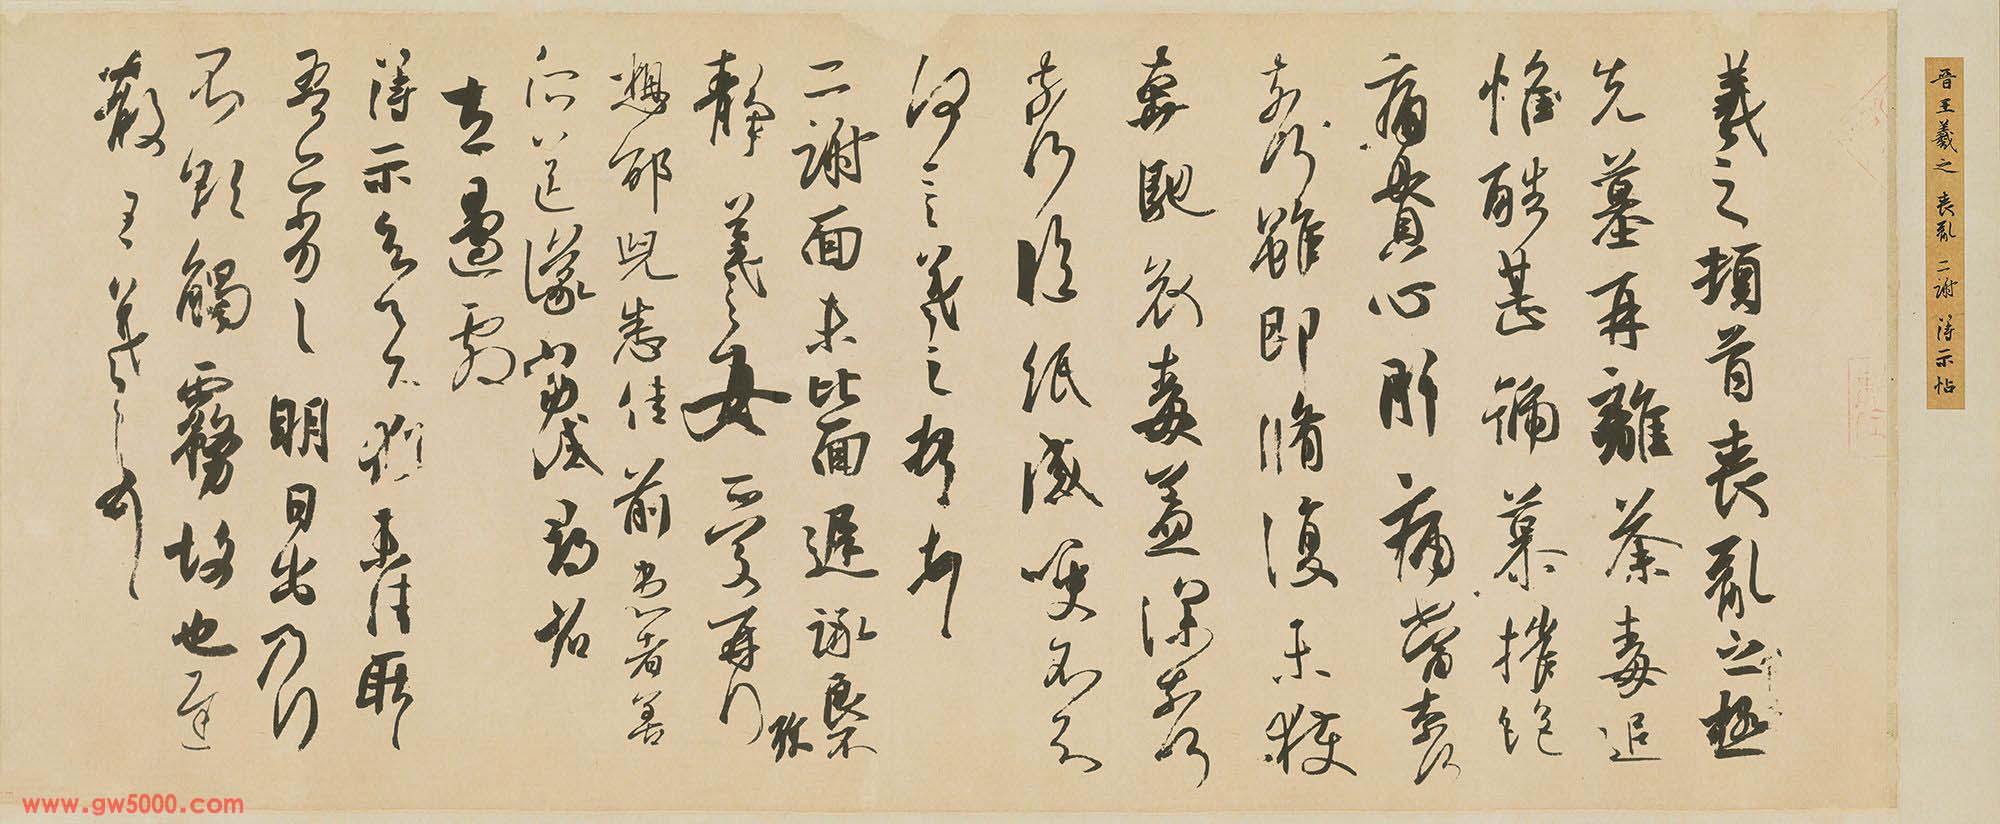 晋王羲之 喪亂 二謝 得示帖
羲之頓首喪亂之極
先墓再離荼毒追
惟酷甚號慕摧絶
痛貫心肝痛當奈何
奈何雖即脩復未獲
奔馳哀毒益深奈何
奈何臨紙感哽不知
何言羲之頓首頓首
二謝面未比面遲詠良不
靜羲之女愛再拜
想邵兒悉佳前患者善
所送議當試尋省
左邊劇
得示知足下猶未佳耿耿
吾亦劣劣明日出乃行
不欲觸霧故也遲
散王羲之頓首
www.gw5000.com